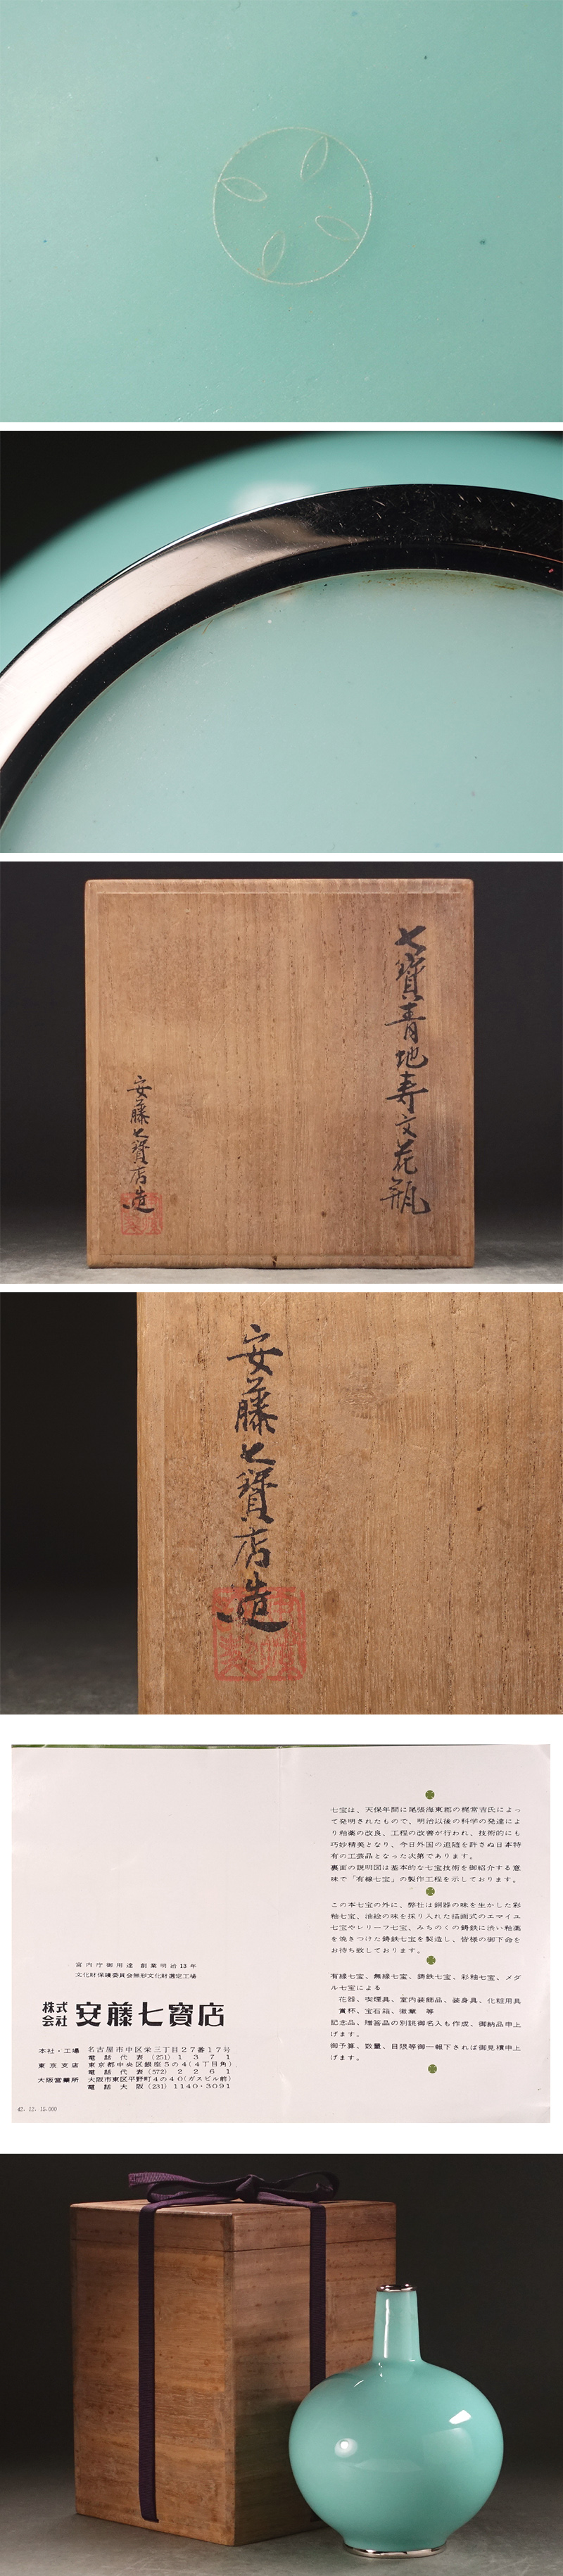 七寶青地寿文花瓶
安藤七寶店造
安藤七寶店造
七宝は、天保年間に尾張海東郡の梶常吉氏によっ
て発明されたもので、明治以後の科学の発達によ
り釉薬の改良、工程の改善が行われ、技術的にも
巧妙精美となり、今日外国の追随を許さぬ日本特
有の工芸品となった次第であります。
裏面の説明図は基本的な七宝技術を御紹介する意
味で「有線七宝」の製作工程を示しております。
この本七宝の外に、弊社は銅器の味を生かした彩
釉七宝、油絵の味を採り入れた描画式のエマイユ
七宝やレリーフ七宝、みちのくの鋳鉄に渋い釉薬
を焼きつけた鋳鉄七宝を製造し、皆様の御下命を
お待ち致しております。
有線七宝、無線七宝、鋳鉄七宝、彩釉七宝、メダ
ル七宝による
花器、喫煙具、室内装飾品、装身具、化粧用具
賞杯、宝石箱、徽章 等
記念品、贈答品の別誂御名入も作成、御納品申上
げます。
御予算、数量、日限等御一報下されば御見積申上
げます。
宮内庁御用達 創業明治13年
文化財保護委員会無形文化財選定工場
株式会社 安藤七寶店
本社・工場 名古屋市中区栄三丁目27番17号
電話代表(251)1371
東京支店 東京都中央区銀座5の4(4丁目角)
電話代表(572)2261
大阪営業所 大阪市東区平野町4の40(ガスビル前)
電話大阪(231)1140・3091
42. 12. 15.000